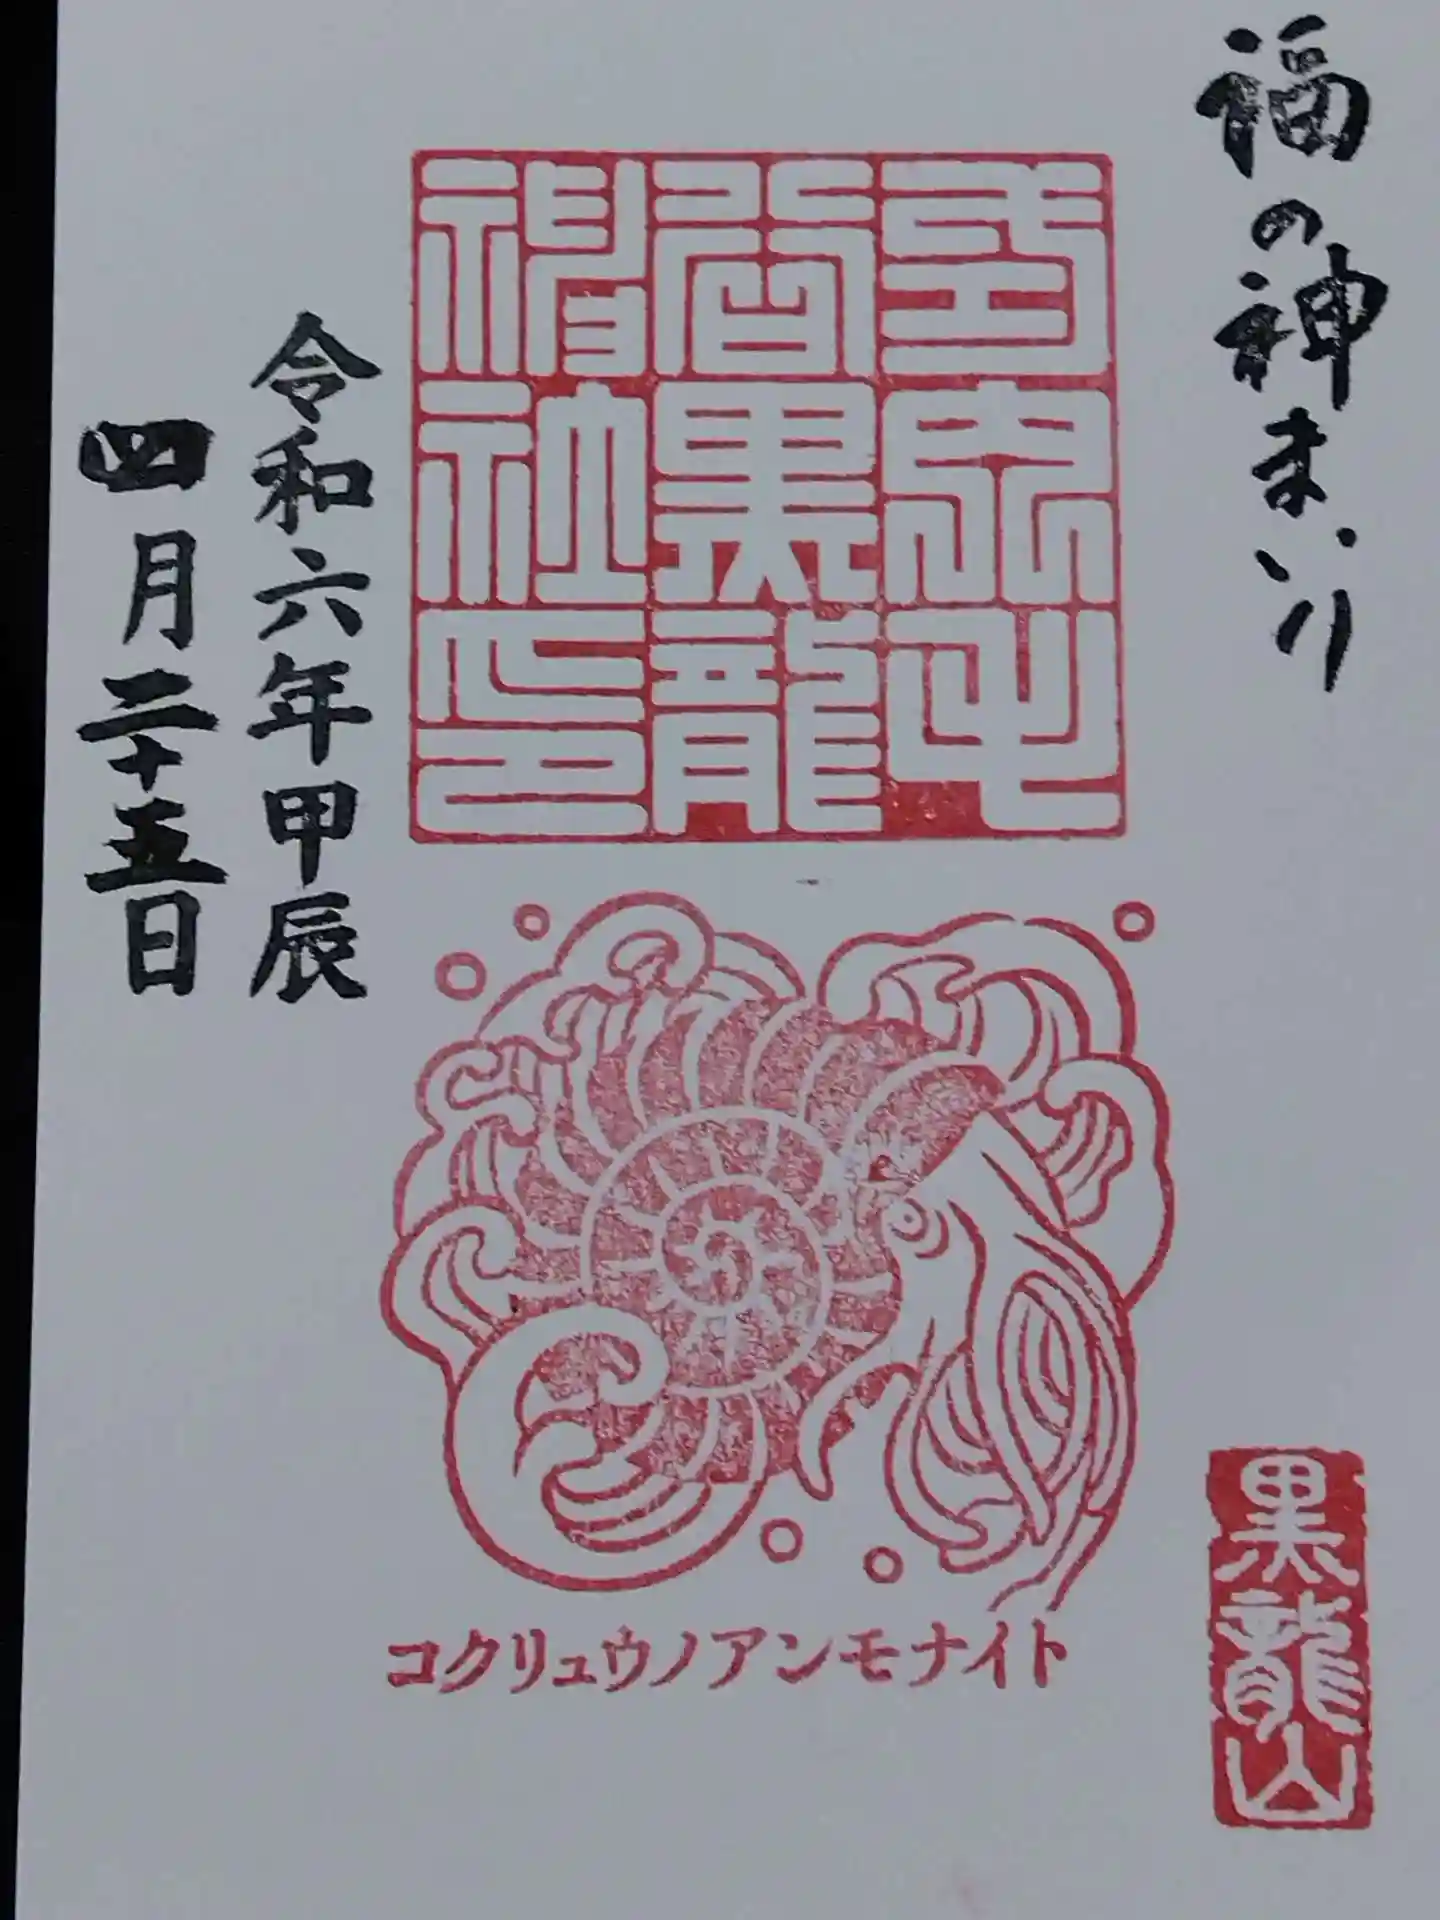 福の神まいり
毛
谷黒龍
神社印
令和六年甲辰
四月二十五日
コクリュウノアンモナイト
黒龍山